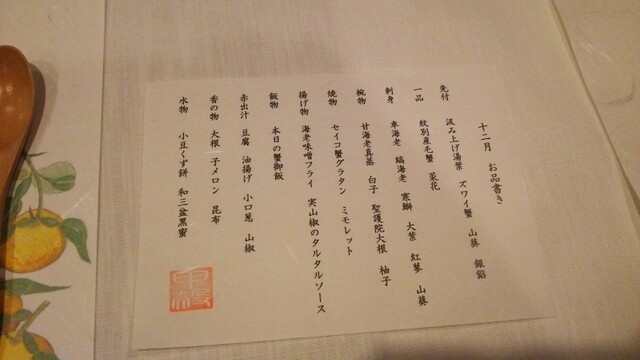 十二月 お品書き
先付 汲み上げ湯葉 ズワイ蟹 山葵 銀餡
一品 紋別産毛蟹 菜花
刺身 車海老 縞海老 寒鰤 大葉 紅蓼 山葵
椀物 甘海老真薯 白子 聖護院大根 柚子
焼物 セイコ蟹グラタン ミモレット
揚げ物 海老味噌フライ 実山椒のタルタルソース
飯物 本日の蟹御飯
赤出汁 豆腐 油揚げ 小口葱 山椒
香の物 大根 子メロン 昆布
水物 小豆くず餅 和三盆黒蜜